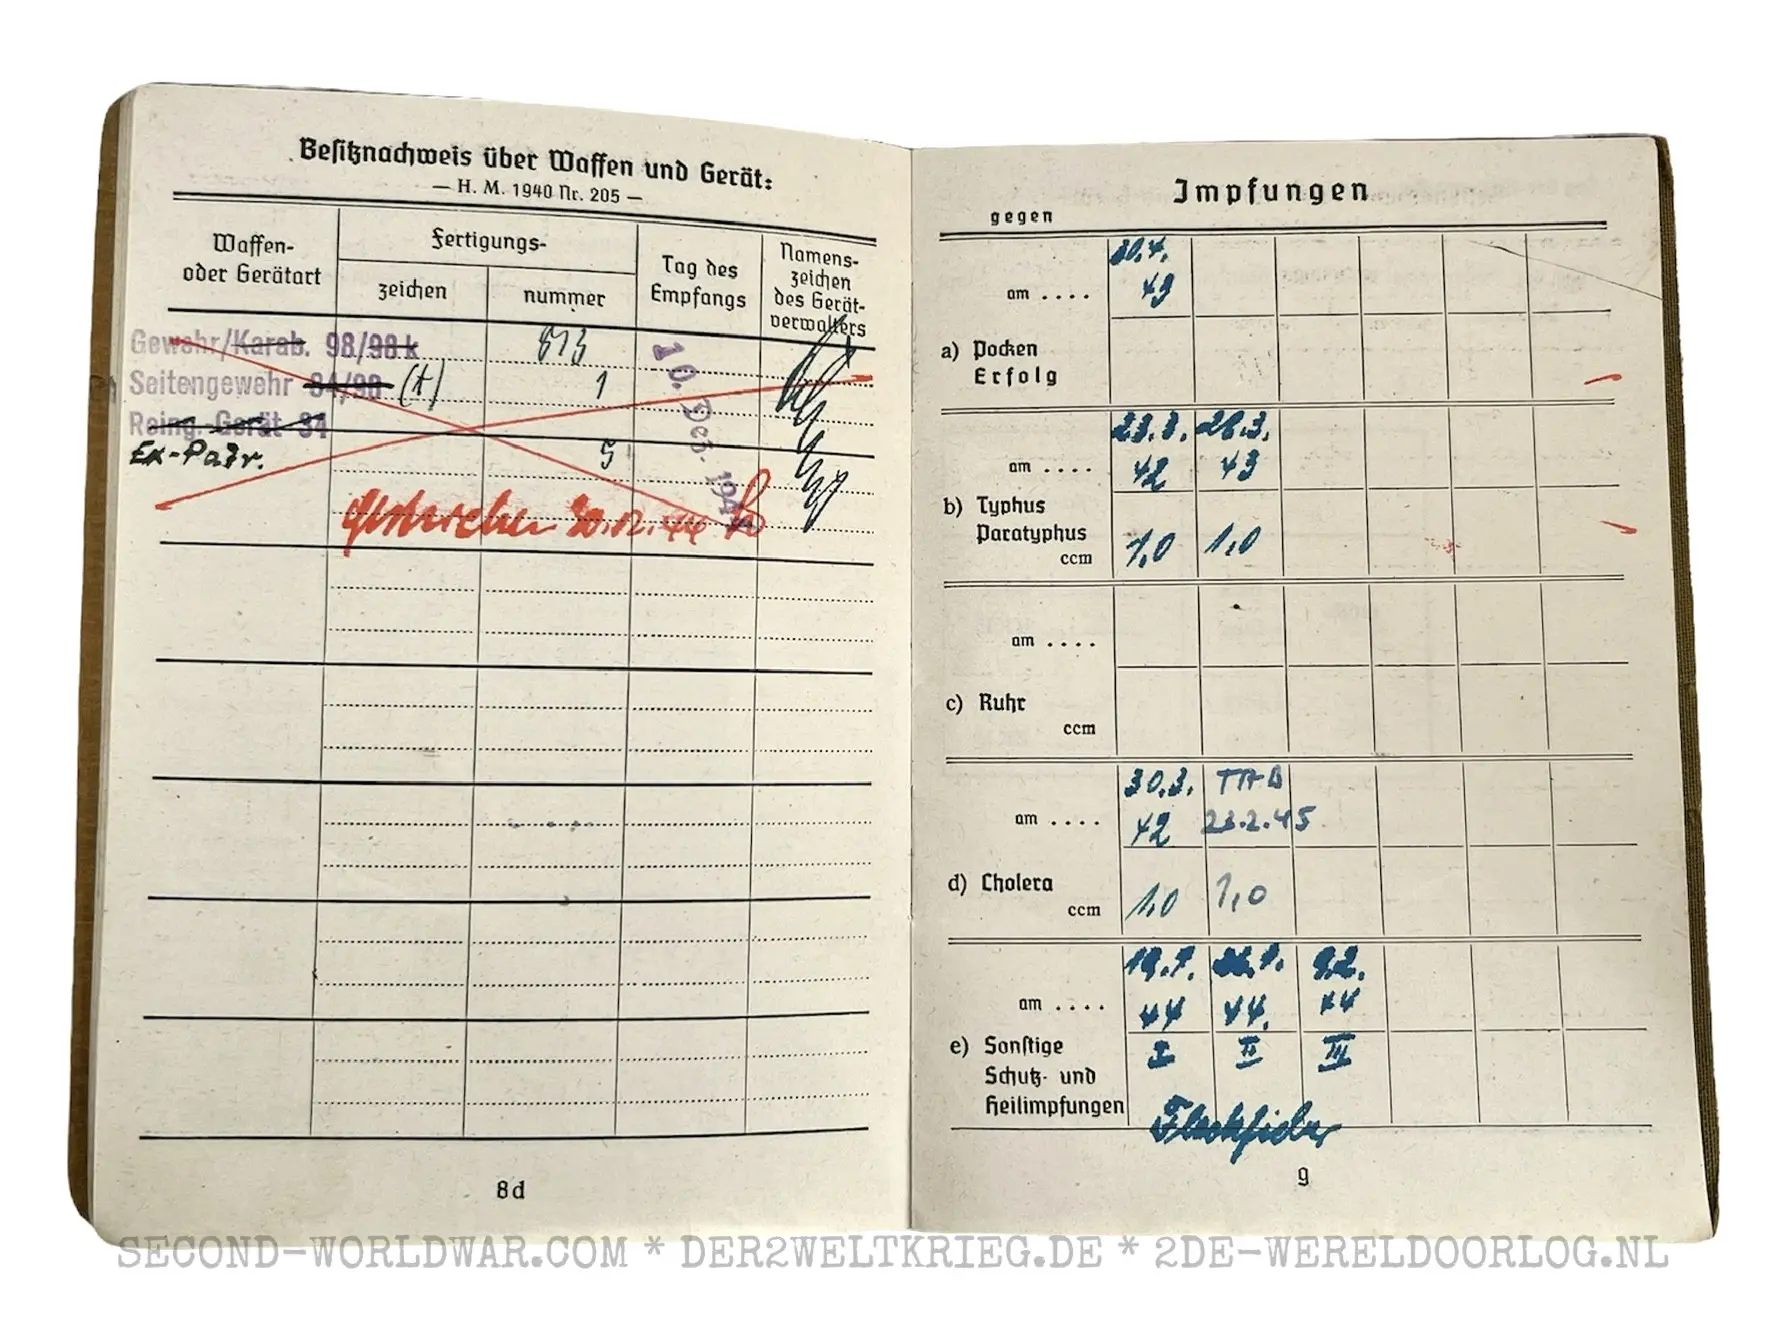 Besitznachweis über Waffen und Gerät:
— H. M. 1940 Nr. 205 —
Waffen-
oder Gerätart
Fertigungs-
zeichen
nummer
Tag des
Empfangs
Namens-
zeichen
des Gerät-
verwalters
Gewehr/Karab. 98/98k
Seitengewehr 84/98 (t) 1
Reing.-Gerät 34
Ex-Patr. 5
10. Dez. 194
gestrichen 20.12.44
8d
Impfungen
gegen
am ....
49
a) Pocken
Erfolg
am ....
23.3. 28.3.
42 43
b) Typhus
Paratyphus
ccm
1,0 1,0
am ....
c) Ruhr
ccm
am ....
30.3. TAB
42 23.2.45
d) Cholera
ccm
1,0 1,0
am ....
9.2.
44 44. 44
e) Sonstige
Schutz- und
Heilimpfungen
I II III
Fleckfieber
9
SECOND-WORLDWAR.COM * DER2WELTKRIEG.DE * 2DE-WERELDOORLOG.NL